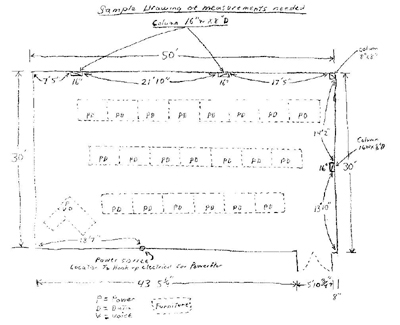 Sample Drawing of measurements needed
Column 16"W x 8"D
50'
Column
8" x 8"
7' 5"
16"
21' 10"
16"
17' 5"
PD PD PD PD PD PD PD
14' 2"
30'
Column
16"W x 8"D
PD PD PD PD PD PD PD
16"
30'
13' 10"
PD PD PD PD PD PD
PD
PD PD
18' 7"
Power source
Location To Hook up electrical for PowerHar
43' 5 3/4"
8"
P = Power
D = Data
V = Voice
Furniture